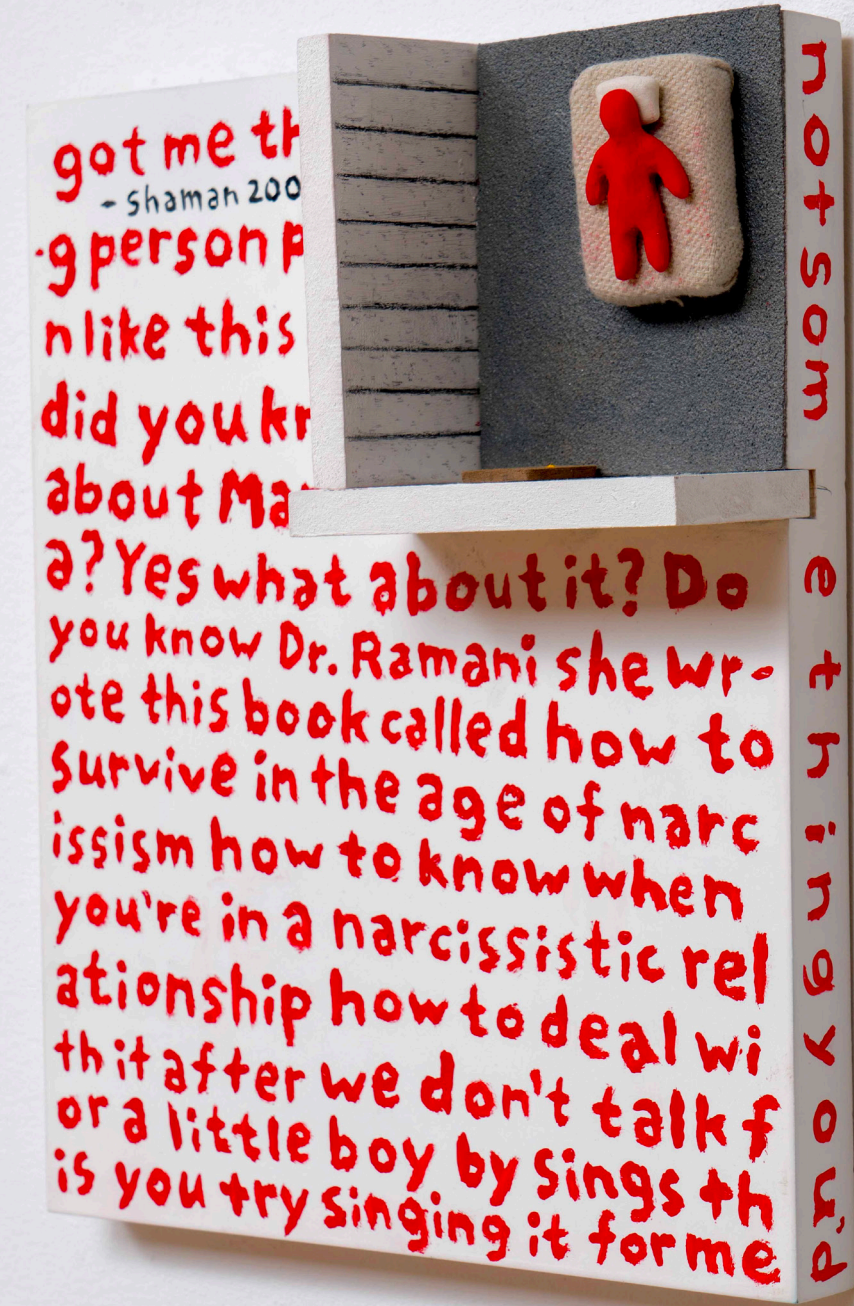 got me th
- Shaman 200
-g person p
n like this
did you kn
about Mar
a? Yes what about it? Do
you know Dr. Ramani she wr-
ote this book called how to
survive in the age of narc
issism how to know when
you're in a narcissistic rel
ationship how to deal wi
th it after we don't talk f
or a little boy by sings th
is you try singing it for me
not som
e thing you'd